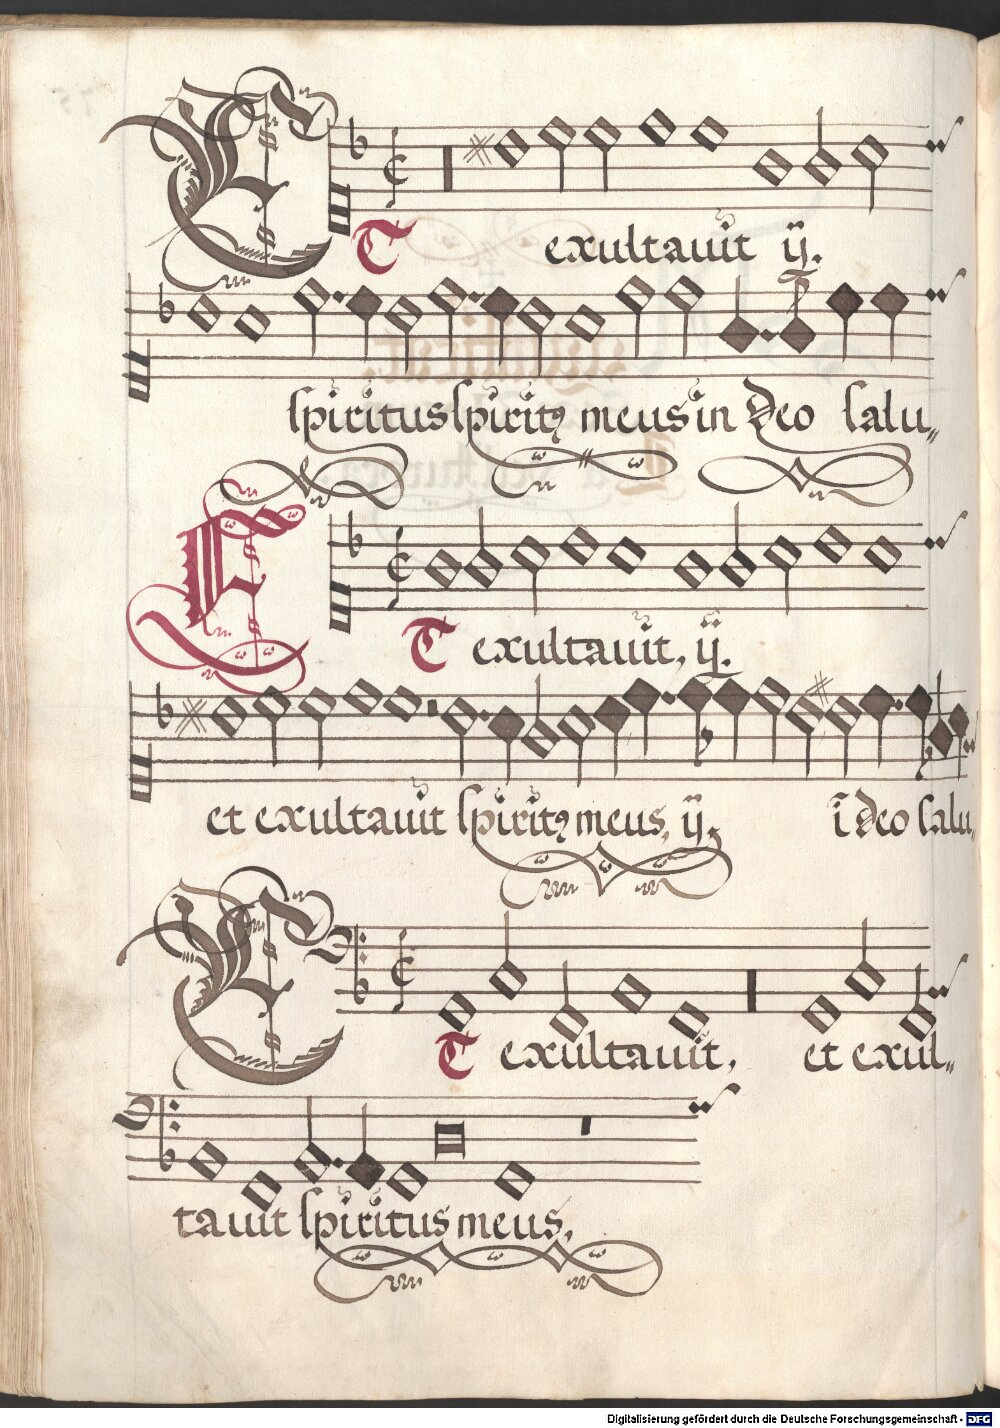 ET exultauit ij.
spiritus spiritꝰ meus in Deo salu„
ET exultauit, ij.
et exultauit spiritꝰ meus, ij, ī Deo salu„
ET exultauit, et exul„
tauit spiritus meus,
Digitalisierung gefördert durch die Deutsche Forschungsgemeinschaft - DFG